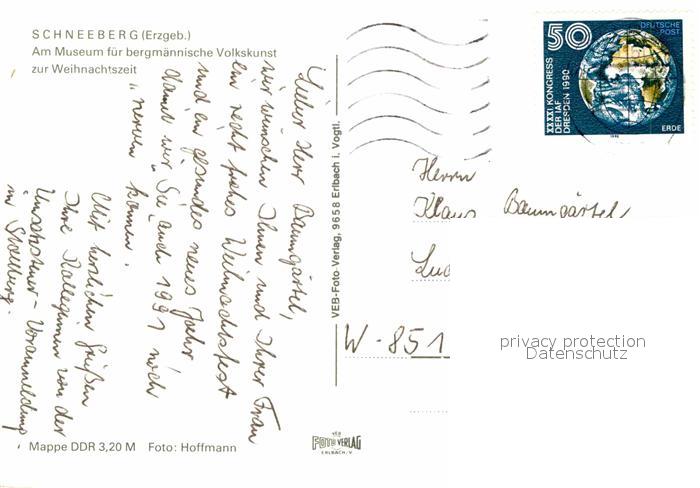 SCHNEEBERG (Erzgeb.)
Am Museum für bergmännische Volkskunst
zur Weihnachtszeit
Lieber Herr Baumgärtel,
wir wünschen Ihnen und Ihrer Frau
ein recht frohes Weihnachtsfest
und ein gesundes neues Jahr
damit wir Sie auch 1991 noch
"nerven können.
Mit herzlichen Grüßen
Ihre Kolleginnen von der
Umsatzsteuer-Voranmeldung
in Stollberg.
Mappe DDR 3,20 M Foto: Hoffmann
VEB-Foto-Verlag, 9658 Erlbach i. Vogtl.
VEB
FOTO VERLAG
ERLBACH/V
50
DEUTSCHE
POST
XXXXI. KONGRESS
DER IAF
DRESDEN 1990
ERDE
1990
Herrn
Klaus Baumgärtel
W-851
privacy protection
Datenschutz